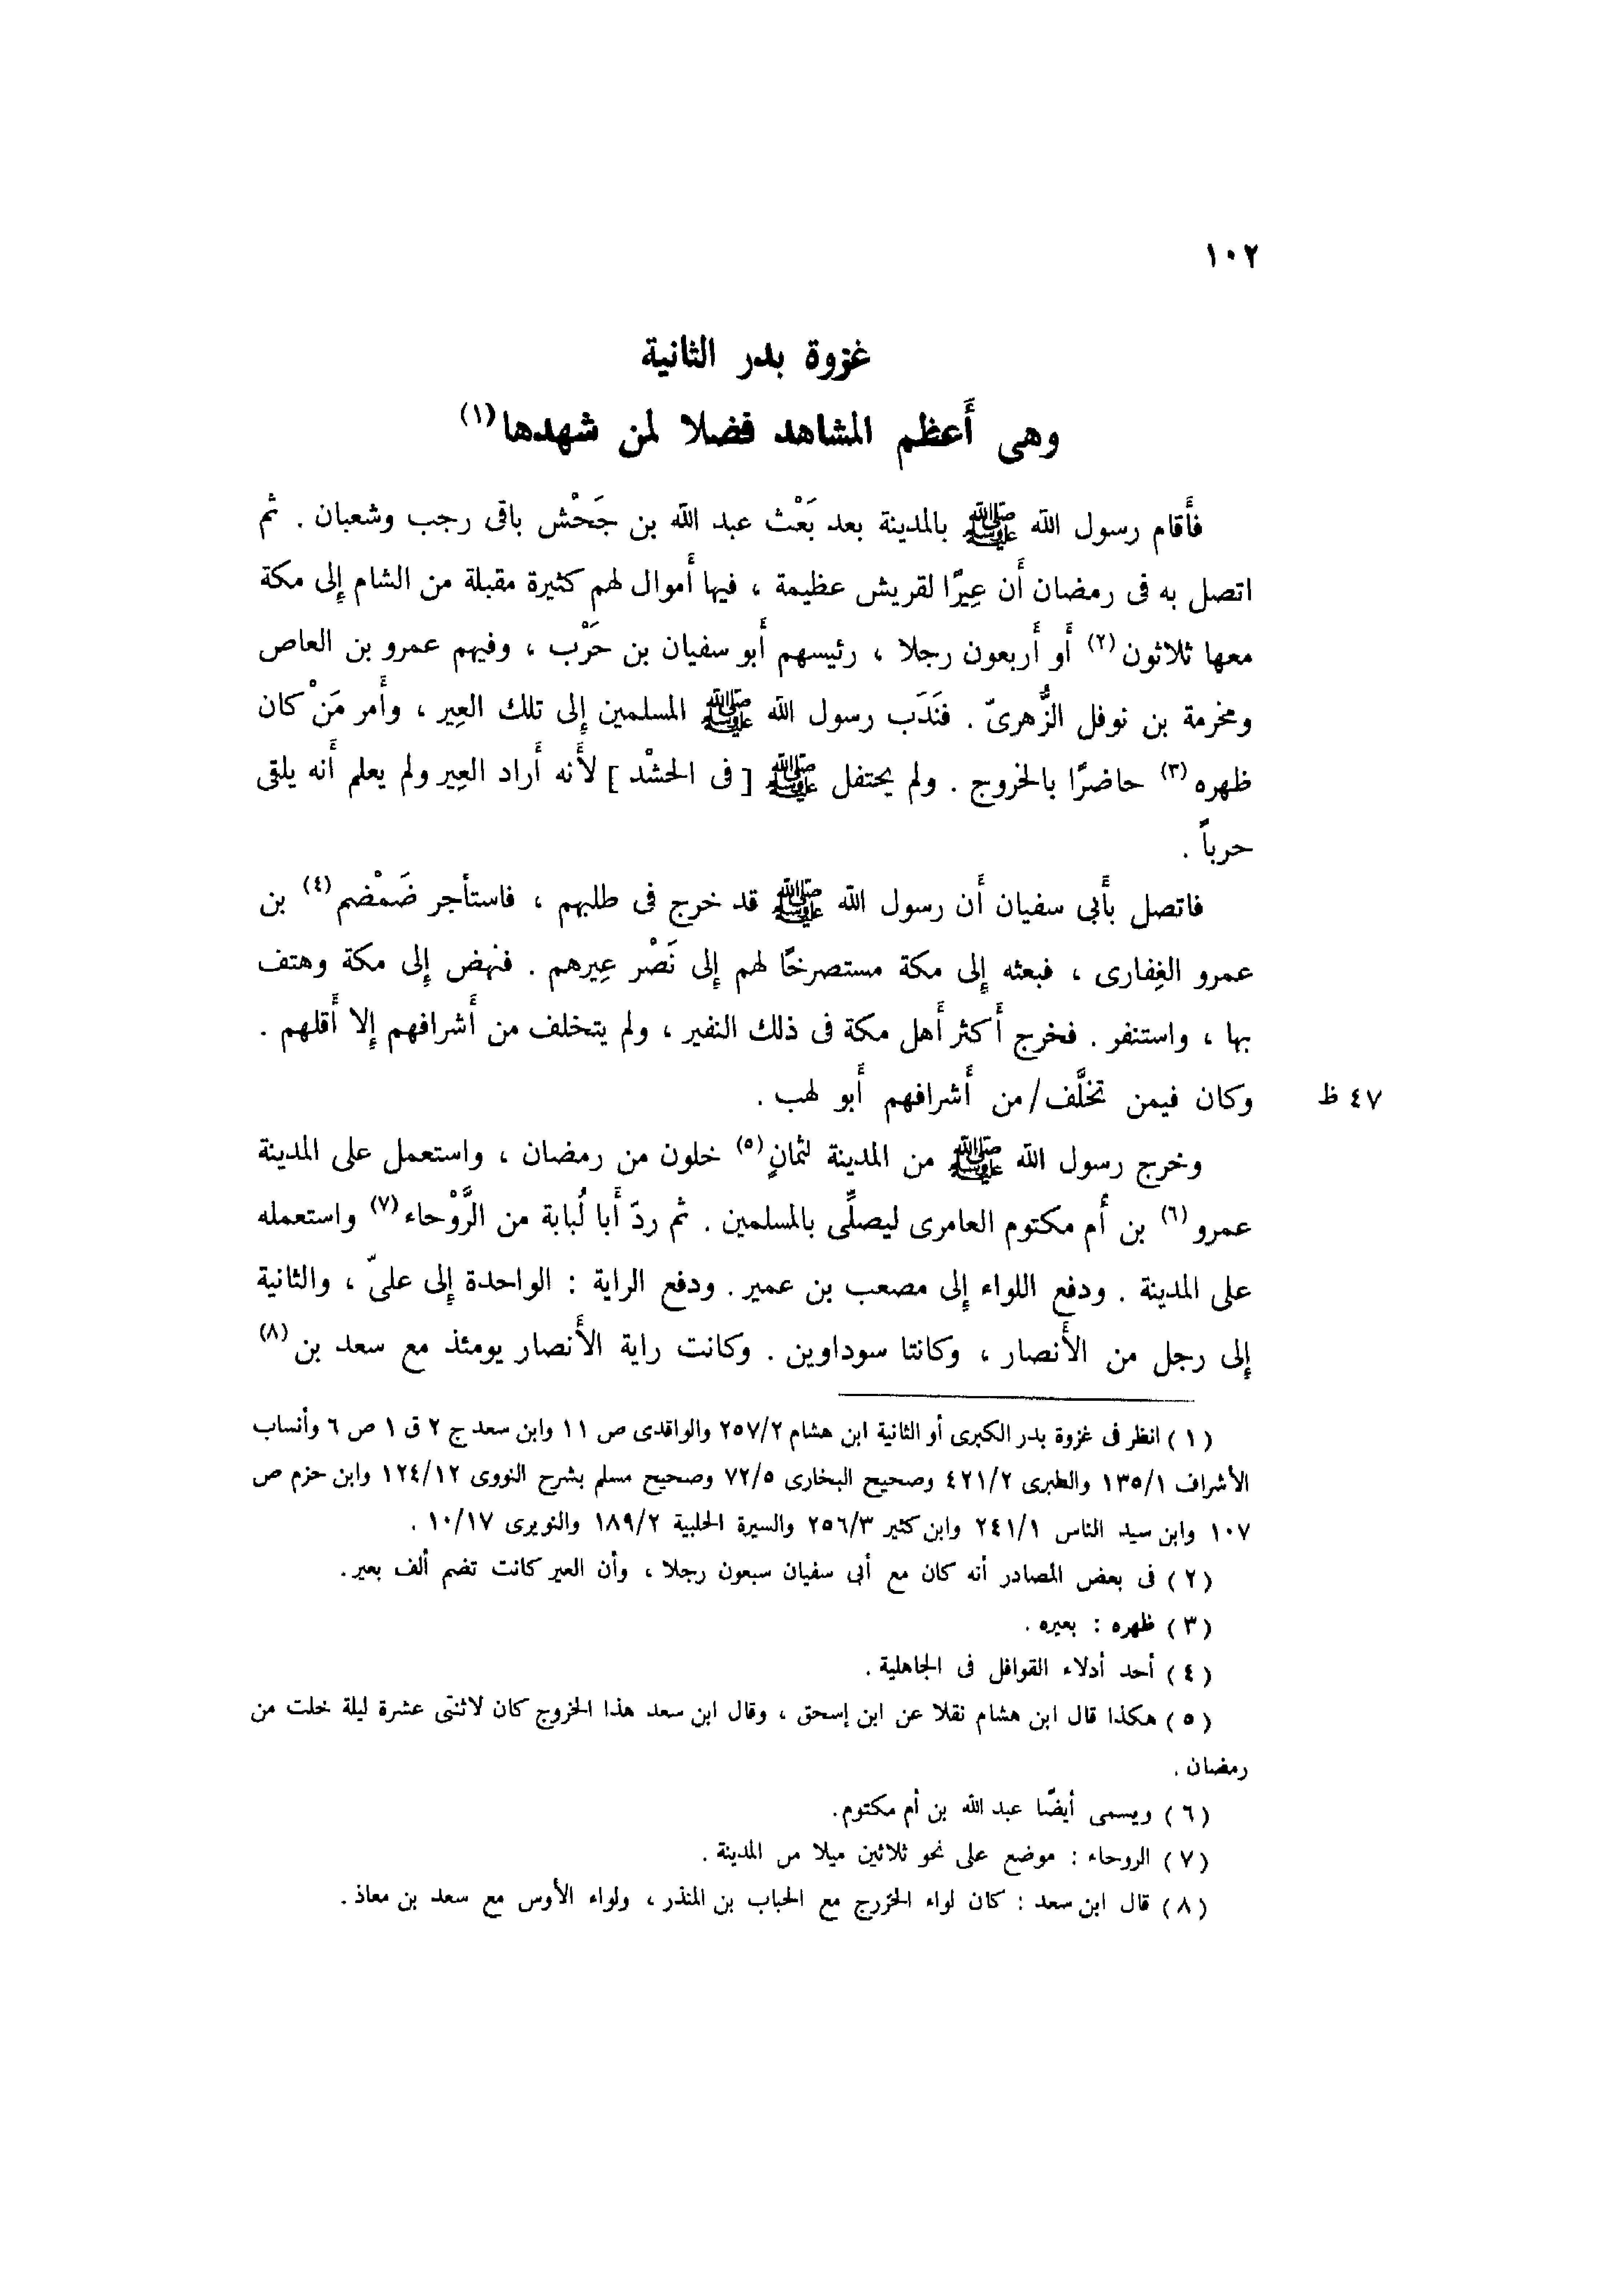 ١٠٢
غزوة بدر الثانية
وهى أَعظم المشاهد فضلا لمن شهدها(١)
فأَقام رسول الله ﷺ بالمدينة بعد بَعْث عبد الله بن جَحْش باقى رجب وشعبان . ثم
اتصل به فى رمضان أَن عِيرًا لقريش عظيمة ، فيها أَموال لهم كثيرة مقبلة من الشام إِلى مكة
معها ثلاثون(٢) أَو أَربعون رجلا ، رئيسهم أَبو سفيان بن حَرْب ، وفيهم عمرو بن العاص
ومخرمة بن نوفل الزُّهرىّ . فَنَدَب رسول الله ﷺ المسلمين إِلى تلك العِير ، وأَمر مَنْ كان
ظهره(٣) حاضرًا بالخروج . ولم يحتفل ﷺ [ فى الحشْد ] لأَنه أَراد العِير ولم يعلم أَنه يلقى
حرباً .
فاتصل بأَبى سفيان أَن رسول الله ﷺ قد خرج فى طلبهم ، فاستأجر ضَمْضم(٤) بن
عمرو الغِفارى ، فبعثه إِلى مكة مستصرخًا لهم إِلى نَصْر عِيرهم . فنهض إِلى مكة وهتف
بها ، واستنفر . فخرج أَكثر أَهل مكة فى ذلك النفير ، ولم يتخلف من أَشرافهم إِلا أَقلهم .
وكان فيمن تخلَّف/من أَشرافهم أَبو لهب . ٤٧ ظ
وخرج رسول الله ﷺ من المدينة لثمانٍ(٥) خلون من رمضان ، واستعمل على المدينة
عمرو(٦) بن أُم مكتوم العامرى ليصلِّى بالمسلمين . ثم ردّ أَبا لُبابة من الرَّوْحاء(٧) واستعمله
على المدينة . ودفع اللواء إِلى مصعب بن عمير . ودفع الراية : الواحدة إِلى علىّ ، والثانية
إِلى رجل من الأَنصار ، وكانتا سوداوين . وكانت راية الأَنصار يومئذ مع سعد بن(٨)
(١) انظر فى غزوة بدر الكبرى أو الثانية ابن هشام ٢٥٧/٢ والواقدى ص ١١ وابن سعد ج ٢ ق ١ ص ٦ وأنساب
الأشراف ١٣٥/١ والطبرى ٤٢١/٢ وصحيح البخارى ٧٢/٥ وصحيح مسلم بشرح النووى ١٢٤/١٢ وابن حزم ص
١٠٧ وابن سيد الناس ٢٤١/١ وابن كثير ٢٥٦/٣ والسيرة الحلبية ١٨٩/٢ والنويرى ١٠/١٧ .
(٢) فى بعض المصادر أنه كان مع أبى سفيان سبعون رجلا ، وأن العير كانت تضم ألف بعير .
(٣) ظهره : بعيره .
(٤) أحد أدلاء القوافل فى الجاهلية .
(٥) هكذا قال ابن هشام نقلا عن ابن إسحق ، وقال ابن سعد هذا الخروج كان لاثنتى عشرة ليلة خلت من
رمضان .
(٦) ويسمى أيضًا عبد الله بن أم مكتوم .
(٧) الروحاء : موضع على نحو ثلاثين ميلا من المدينة .
(٨) قال ابن سعد : كان لواء الخزرج مع الحباب بن المنذر ، ولواء الأوس مع سعد بن معاذ .